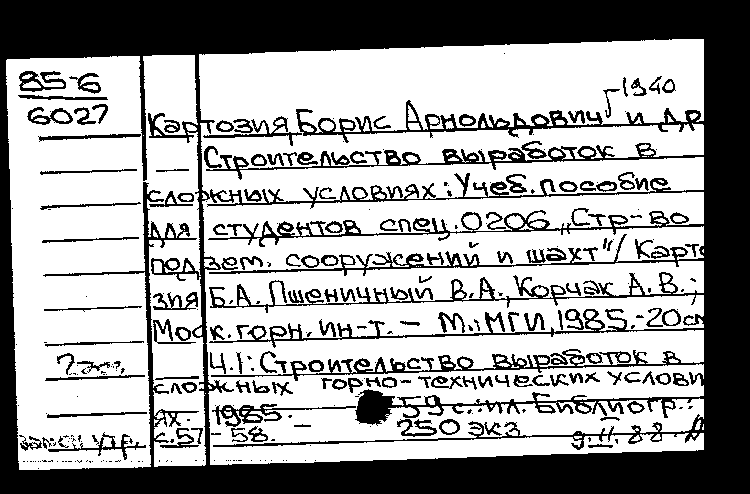 85-6
6027
1940
Картозия, Борис Арнольдович и др
Строительство выработок в
сложных условиях: Учеб. пособие
для студентов спец. 0206 „Стр-во
подзем. сооружений и шахт"/ Карто
зия Б.А., Пшеничный В.А., Корчак А.В.;
Моск. горн. ин-т. - М.: МГИ, 1985. - 20 см
Ч.1: Строительство выработок в
сложных горно-технических услови
ях. 1985. - 59 с.: ил. Библиогр.:
с. 57 - 58. 250 экз